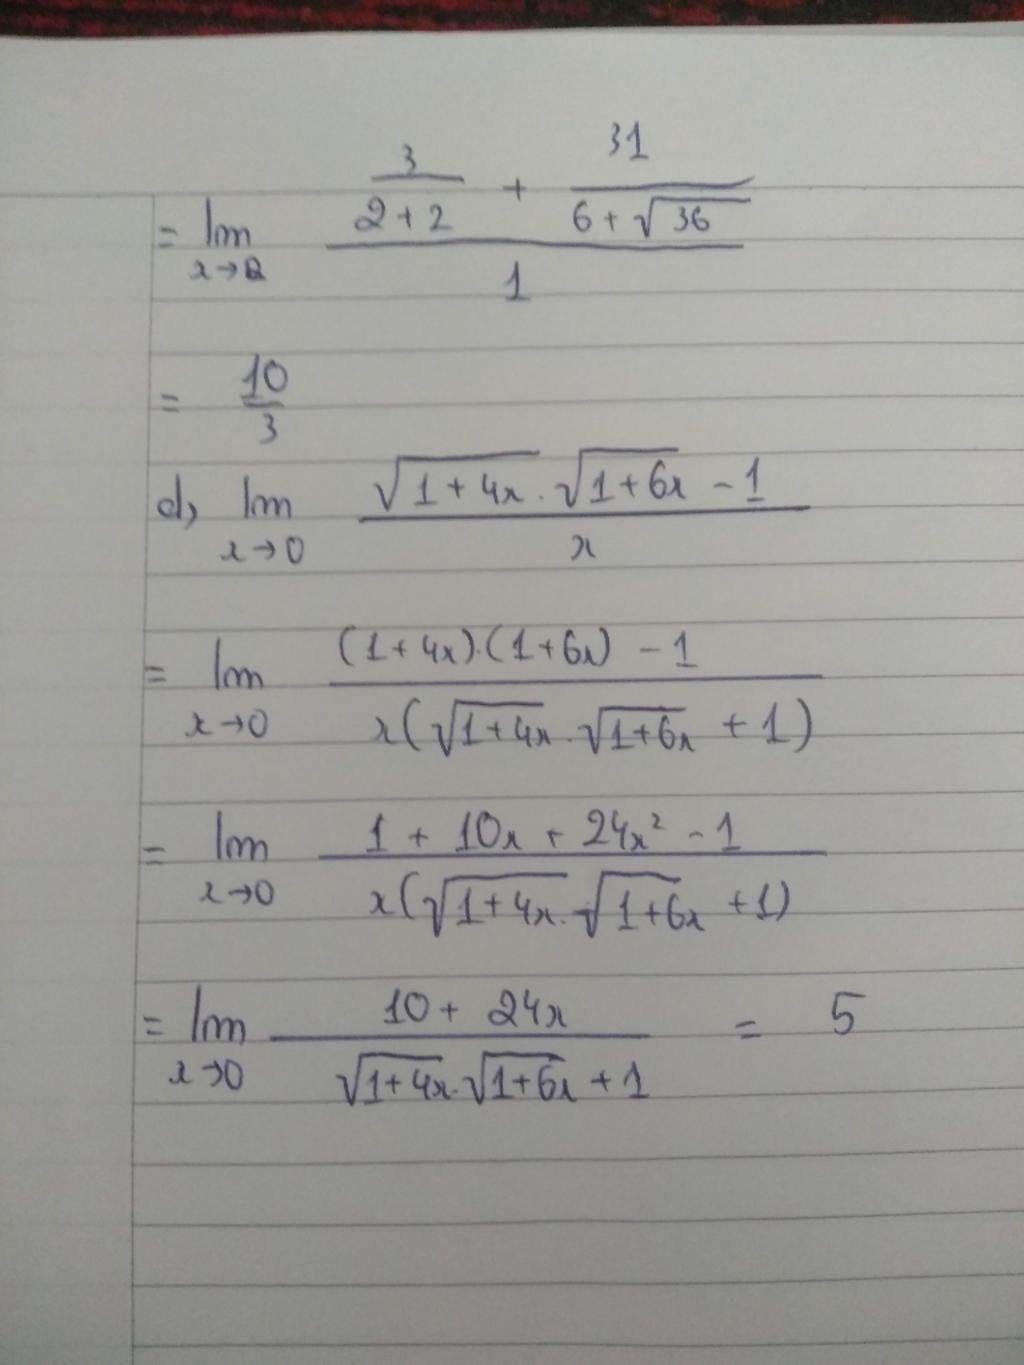 = lim x→2 (3/(2+2) + 31/(6+√36))/1
= 10/3
d, lim x→0 (√(1+4x) . √(1+6x) - 1)/x
= lim x→0 ((1+4x).(1+6x) - 1)/(x(√(1+4x) . √(1+6x) + 1))
= lim x→0 (1 + 10x + 24x² - 1)/(x(√(1+4x) . √(1+6x) + 1))
= lim x→0 (10 + 24x)/(√(1+4x) . √(1+6x) + 1) = 5